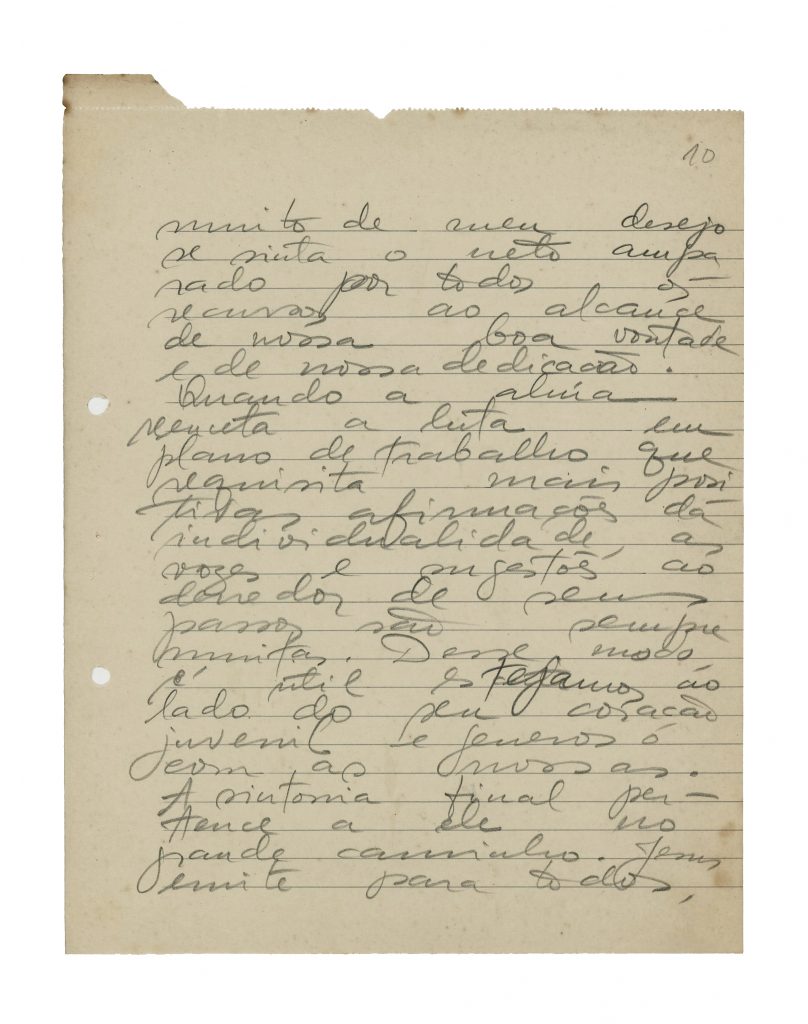 10
muito de meu desejo
se sinta o neto ampa
rado por todos os
recursos ao alcance
de nossa boa vontade
e de nossa dedicação.
Quando a alma
enceta a luta em
plano de trabalho que
requisita mais posi
tivas afirmações da
individualidade, as
vozes e sugestões ao
derredor de seus
passos são sempre
muitas. Desse modo
é útil estejamos ao
lado do seu coração
juvenil e generoso
com as nossas.
A sintonia final per-
tence a ele no
grande caminho. Jesus
emite para todos,